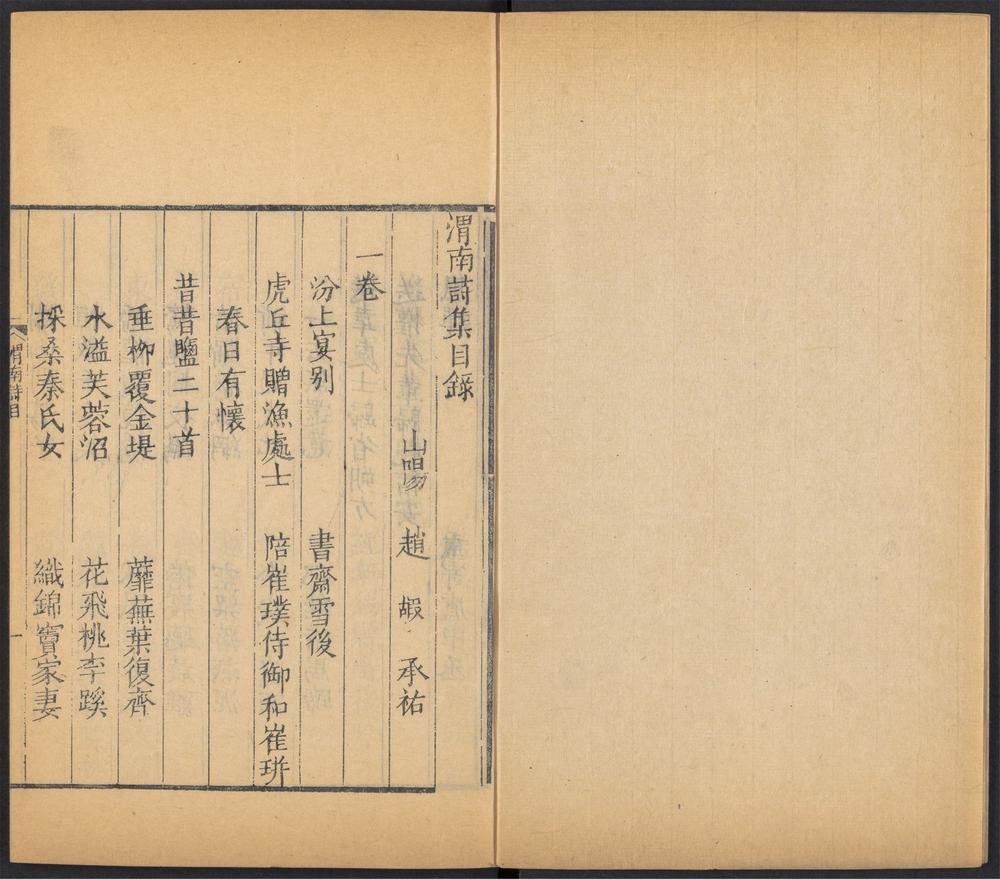 渭南詩集目錄
山陽 趙 嘏 承祐
一卷
汾上宴别 書齋雪後
虎丘寺贈漁處士 陪崔璞侍御和崔珦
春日有懷
昔昔鹽二十首
垂柳覆金堤 蘼蕪葉復齊
水溢芙蓉沼 花飛桃李蹊
採桑秦氏女 織錦竇家妻
渭南詩目 一